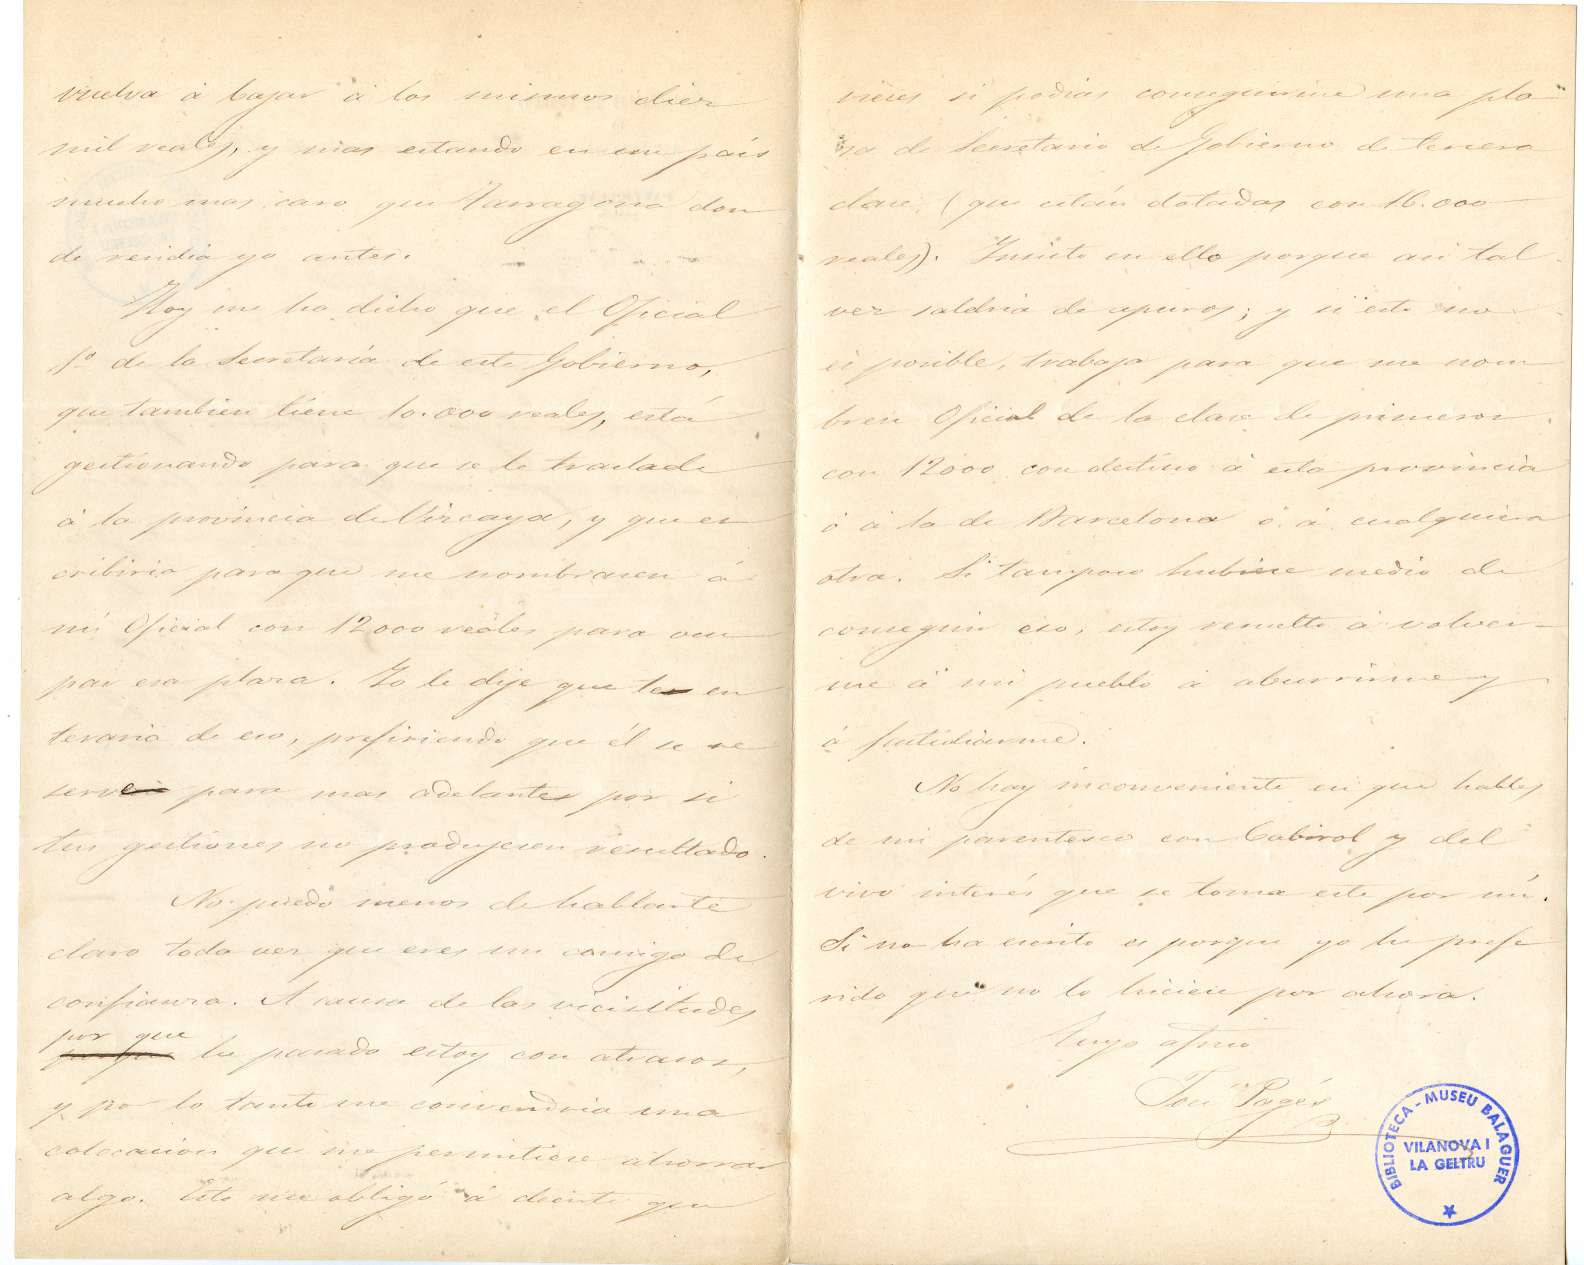 vuelva á bajar á los mismos diez
mil reales, y mas estando en un país
mucho mas caro que Tarragona don
de residia yo antes.
Hoy me ha dicho que el Oficial
1º de la Secretaría de este Gobierno,
que tambien tiene 10.000 reales, está
gestionando para que se le traslade
á la provincia de Vizcaya, y que es
cribiria para que me nombrasen á
mi Oficial con 12000 reales para ocu
par esa plaza. Yo le dije que te en
teraria de eso, prefiriendo que él se re
serve para mas adelante por si
tus gestiones no produjesen resultado.
No puedo menos de hablarte
claro toda vez que eres un amigo de
confianza. A causa de las vicisitudes
por que he pasado estoy con atrasos,
y por lo tanto me convendria una
colocacion que me permitiese ahorrar
algo. Esto me obligó á decirte que
vieses si podias conseguirme una pla
za de Secretario de Gobierno de tercera
clase (que están dotadas con 16.000
reales). Insisto en ello porque asi tal
vez saldria de apuros; y si esto no
es posible, trabaja para que me nom
bren Oficial de la clase de primeros
con 12000 con destino á esta provincia
ó á la de Barcelona ó á cualquiera
otra. Si tampoco hubiese medio de
conseguir eso, estoy resuelto á volver-
me á mi pueblo á aburrirme y
á fastidiarme.
No hay inconveniente en que hables
de mi parentesco con Cabirol y del
vivo interés que se toma este por mí.
Si no ha escrito es porque yo he prefe
rido que no lo hiciese por ahora.
Tuyo afmo
José Pagés
BIBLIOTECA - MUSEU BALAGUER
VILANOVA I
LA GELTRU